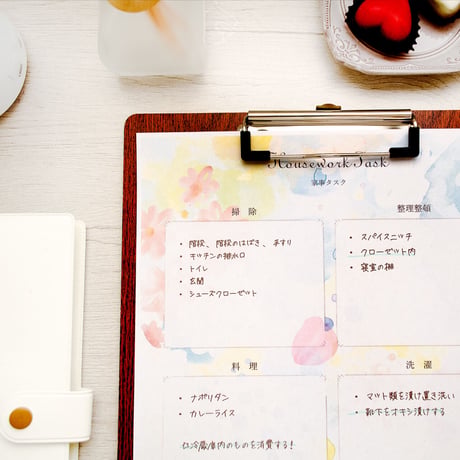 Housework Task
家事タスク
掃 除
• 階段、階段のはばき、手すり
• キッチンの排水口
• トイレ
• 玄関
• シューズクローゼット
整理整頓
• スパイスニッチ
• クローゼット内
• 寝室の棚
料 理
• ナポリタン
• カレーライス
冷蔵庫内のものを消費する!
洗 濯
• マット類を漬け置き洗い
• 靴下をオキシ漬けする